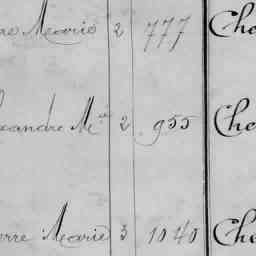 Marie 2 777 Che
exandre Mie 2 955 Che
erre Marie 3 1040 Che